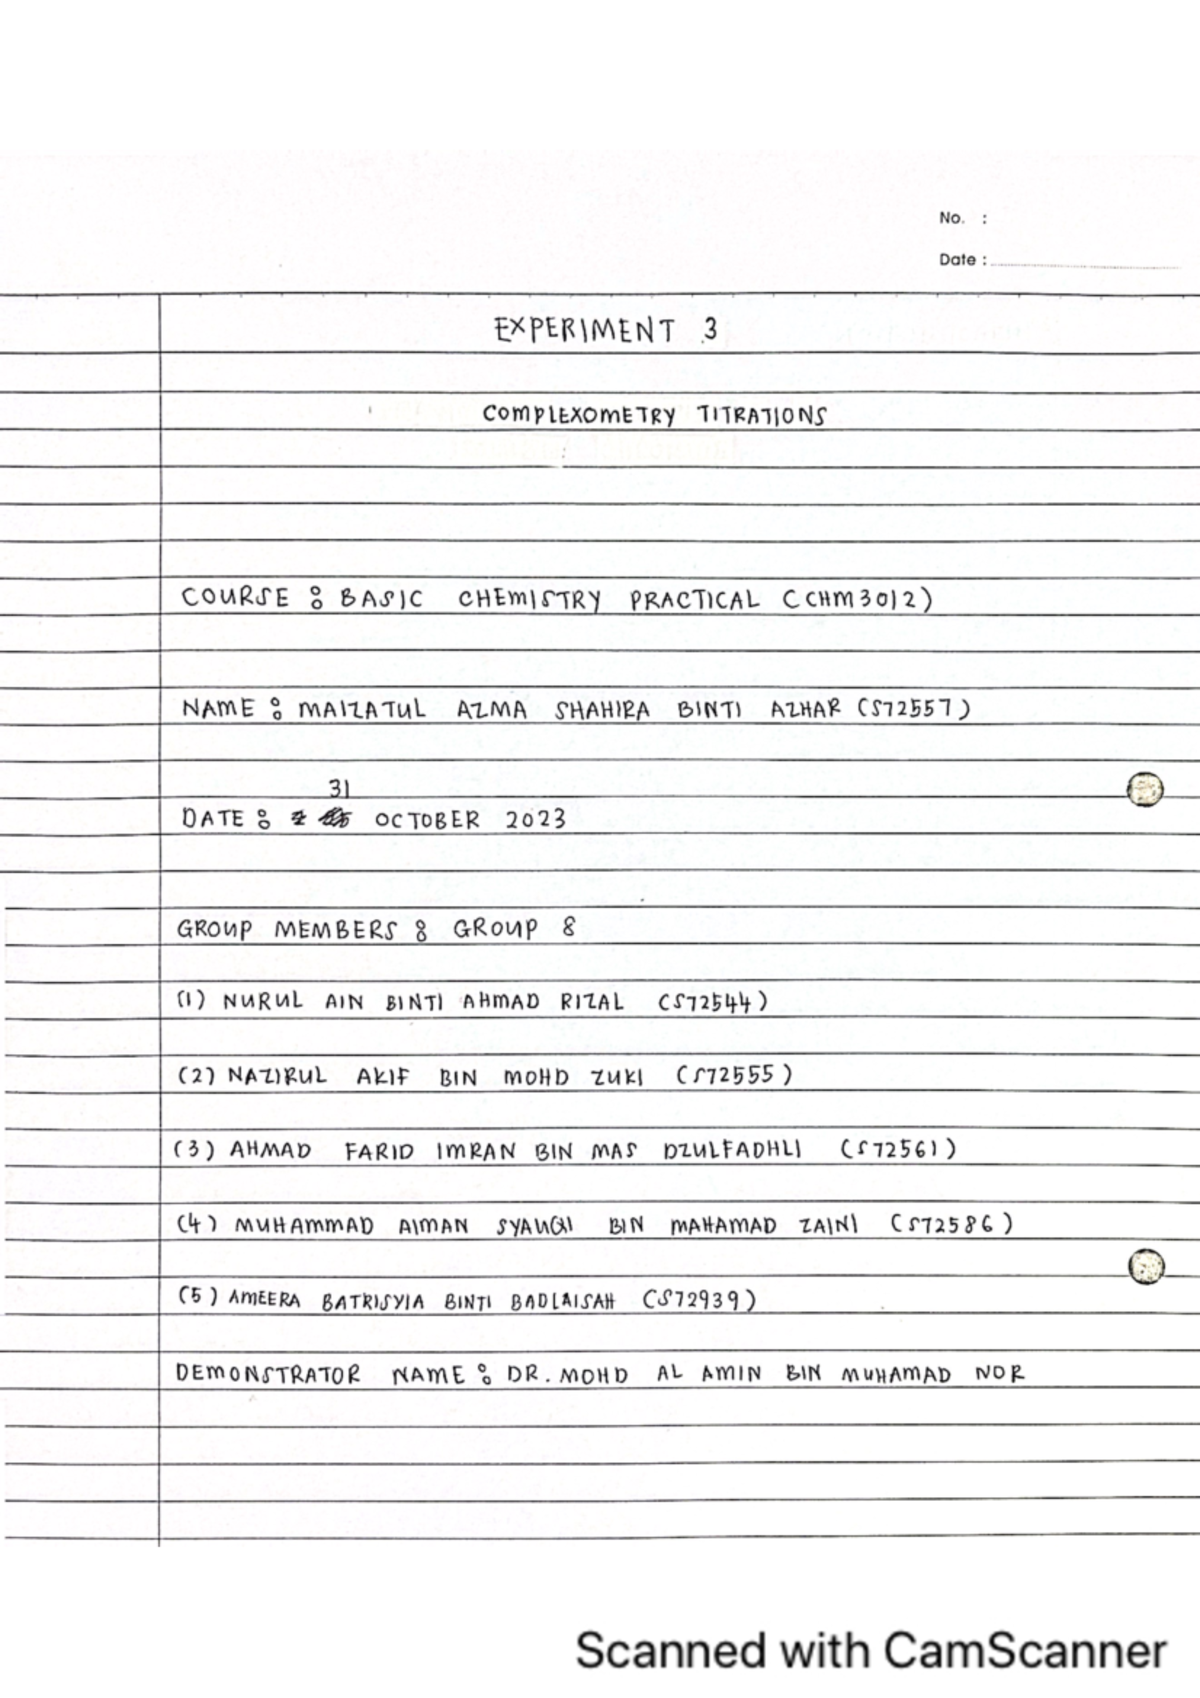 No. :
Date :
EXPERIMENT 3
COMPLEXOMETRY TITRATIONS
COURSE : BASIC CHEMISTRY PRACTICAL (CHM3012)
NAME : MAIZATUL AZMA SHAHIRA BINTI AZHAR (S72557)
31
DATE : OCTOBER 2023
GROUP MEMBERS : GROUP 8
(1) NURUL AIN BINTI AHMAD RIZAL (S72544)
(2) NAZIRUL AKIF BIN MOHD ZUKI (S72555)
(3) AHMAD FARID IMRAN BIN MAS DZULFADHLI (S72561)
(4) MUHAMMAD AIMAN SYAUQI BIN MAHAMAD ZAINI (S72586)
(5) AMEERA BATRISYIA BINTI BADLAISAH (S72939)
DEMONSTRATOR NAME : DR. MOHD AL AMIN BIN MUHAMAD NOR
Scanned with CamScanner